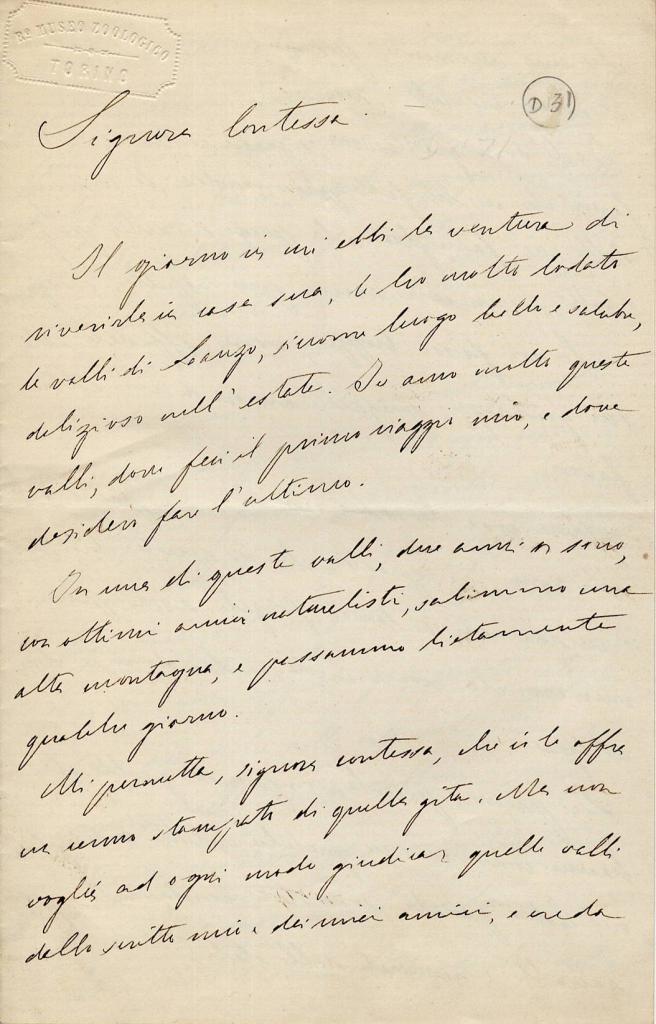 Ro MUSEO ZOOLOGICO
TORINO
D 31
Signora Contessa
Il giorno in cui ebbi la ventura di
riverirla in casa sua, le ho molto lodato
le valli di Lanzo, siccome luogo bello e salubre,
delizioso nell'estate. Io amo molto queste
valli, dove feci il primo viaggio mio, e dove
desidero fare l'ultimo.
In una di queste valli, due anni or sono,
con ottimi amici naturalisti, salimmo una
alta montagna, e passammo lietamente
qualche giorno.
Mi permetta, signora contessa, che io le offra
un cenno stampato di quella gita. Ma non
voglia ad ogni modo giudicar quelle valli
dallo scritto mio e dei miei amici, e creda